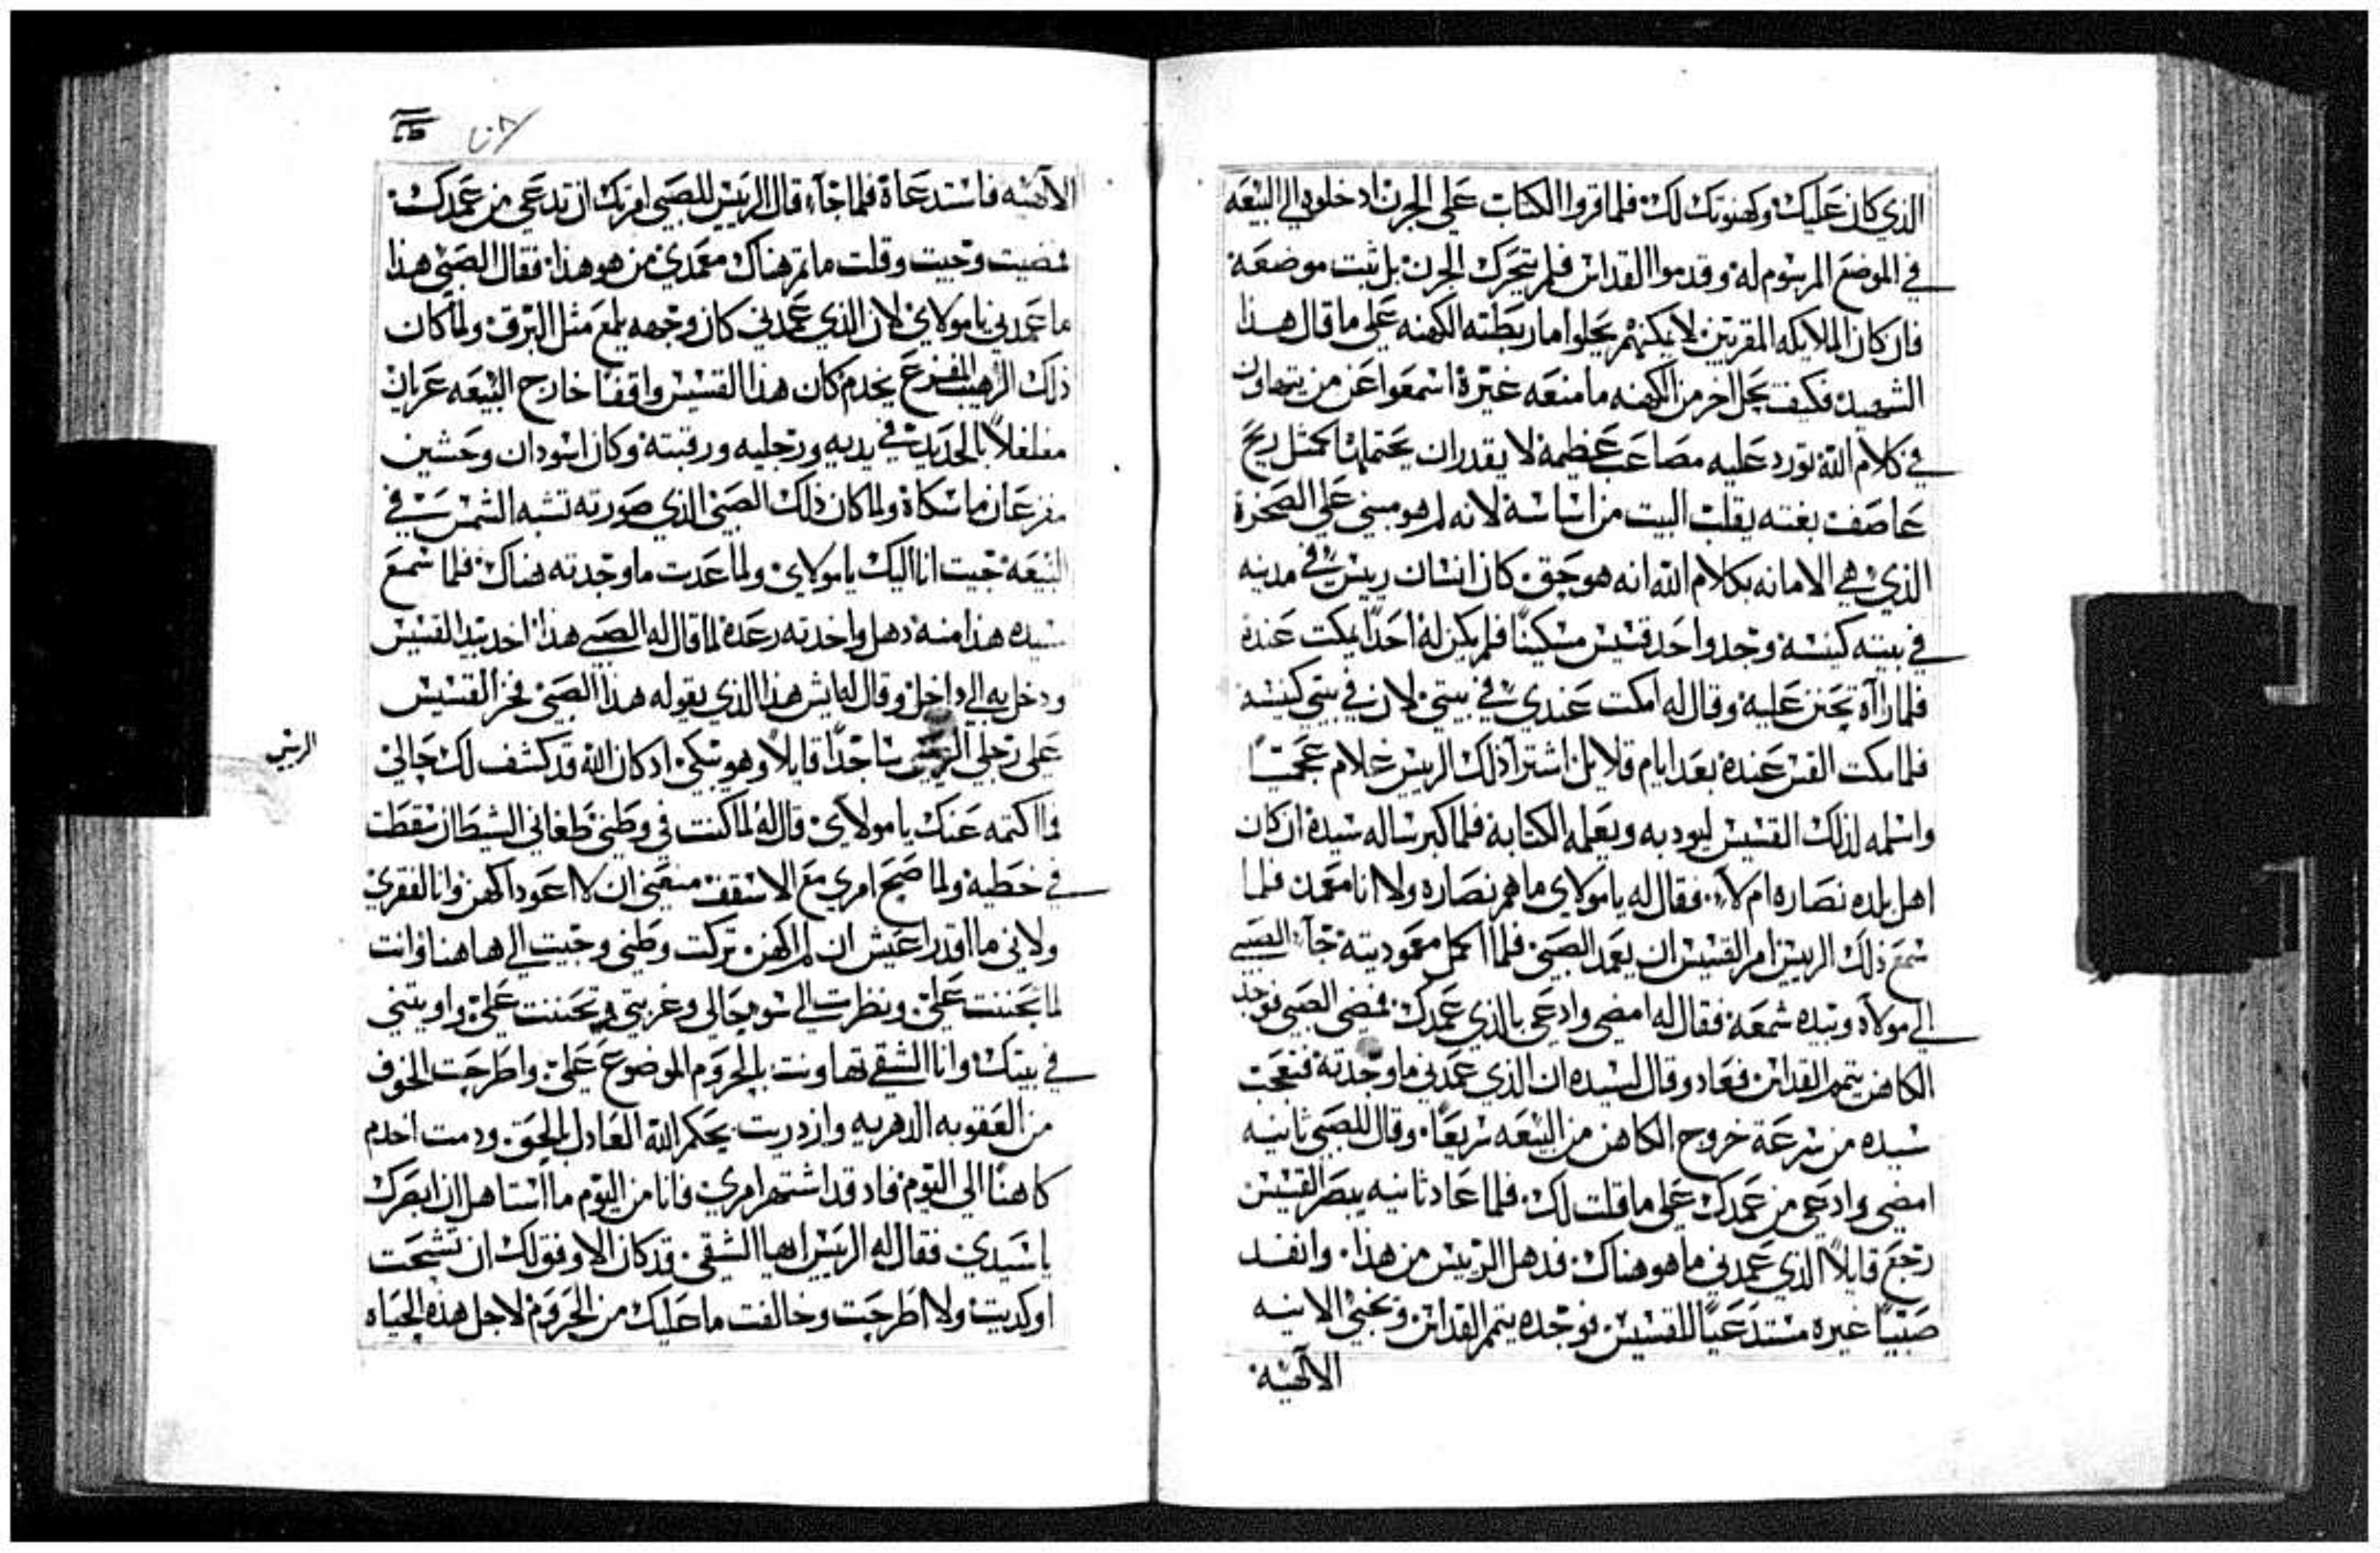 الذي كان عليك وكهنوتك لك فلما قروا الكتاب على الجرن ادخلوه الي البيعه
في الموضع المرسوم له وقدموا القداس فلم يتحرك الجرن بل ثبت موضعه
فان كان الملايكه المقربين لا يمكنهم يحلوا ما ربطته الكهنه على ما قال هذا
الشهيد فكيف يحل اخر من الكهنه ما منعه غيره اسمعوا عن من يتهاون
في كلام الله تورد عليه مصاعب عظيمه لا يقدر ان يحتملها كمثل ريح
عاصف بغته يقلب البيت من اساسه لانه لم هو مبني على الصخره
الذي هي الامانه بكلام الله انه هو حق كان انسان رييس في مدينه
في بيته كنيسه وجد واحد قسيس مسكينا فلم يكن له احدا يمكت عنده
فلما رااه تحنن عليه وقال له امكت عندي في بيتي لان في بيتي كنيسه
فلما مكت القس عنده بعد ايام قلايل اشترا ذلك الرييس غلام عجميا
واسلمه لذلك القسيس ليودبه ويعلمه الكتابه فلما كبر ساله سيده ان كان
اهل بلده نصاره ام لا فقال له يا مولاي ما هم نصاره ولا انا معمد فلما
سمع ذلك الرييس امر القسيس ان يعمد الصبي فلما اكمل معموديته جآ الصبي
الي مولاه وبيده شمعه فقال له امضي وادعي بالذي عمدك فمضي الصبي فوجد
الكاهن يتمم القداس فعاد وقال لسيده ان الذي عمدني ما وجدته فتعجب
سيده من سرعة خروج الكاهن من البيعه سريعا وقال للصبي ثانيه
امضي وادعي من عمدك على ما قلت لك فلما عاد ثانيه يبصر القسيس
رجع قايلا الذي عمدني ما هو هناك فدهل الرييس من هذا وانفد
صبيا غيره مستدعيا للقسيس فوجده يتمم القداس ويخبي الانيه
الآلهيه
الآلهيه فاستدعاه فلما جآء قال الرييس للصبي امرتك ان تدعي من عمدك
فمضيت وجيت وقلت ما تم هناك معمدي من هو هذا فقال الصبي هذا
ما عمدني يا مولاي لان الذي عمدني كان وجهه يلمع مثل البرق ولما كان
ذلك الرهيب المفزع يخدم كان هذا القسيس واقفا خارج البيعه عريان
مغلغلا بالحديد في يديه ورجليه ورقبته وكان اسودان وحشين
مفزعان ماسكاه ولما كان ذلك الصبي الذي صورته تشبه الشمس في
البيعه جيت انا اليك يا مولاي ولما عدت ما وجدته هناك فلما سمع
سيده هذا منه دهل واخدته رعده لما قال له الصبي هذا اخد بيد القسيس
ودخل به الي داخل وقال له ايش هذا الذي يقوله هذا الصبي فخر القسيس
على رجلي ساجدا قايلا وهو يبكي اد كان الله قد كشف لك حالي
الرييس
فما اكتمه عنك يا مولاي قال له لما كنت في وطني طغاني الشيطان سقطت
في خطيه ولما صح امري مع الاسقف منعني ان لا اعود اكهن وانا لفقري
ولاني ما اقدر اعيش ان لم اكهن تركت وطني وجيت الي هاهنا وانت
لما تحننت علي ونظرت الي سو حالي وغربتي وتحننت علي واويتني
في بيتك وانا الشقي تهاونت بالحروم الموضوع علي واطرحت الخوف
من العقوبه الدهريه وازدريت بحكم الله العادل بالحق ودمت اخدم
كاهنا الي اليوم فاد قد اشتهر امري فانا من اليوم ما استاهل ان ابصرك
يا سيدي فقال له الرييس ايها الشقي قد كان الاوفق لك ان تشحت
او كديت ولا اطرحت وخالفت ما عليك من الحروم لاجل هذه الحياه